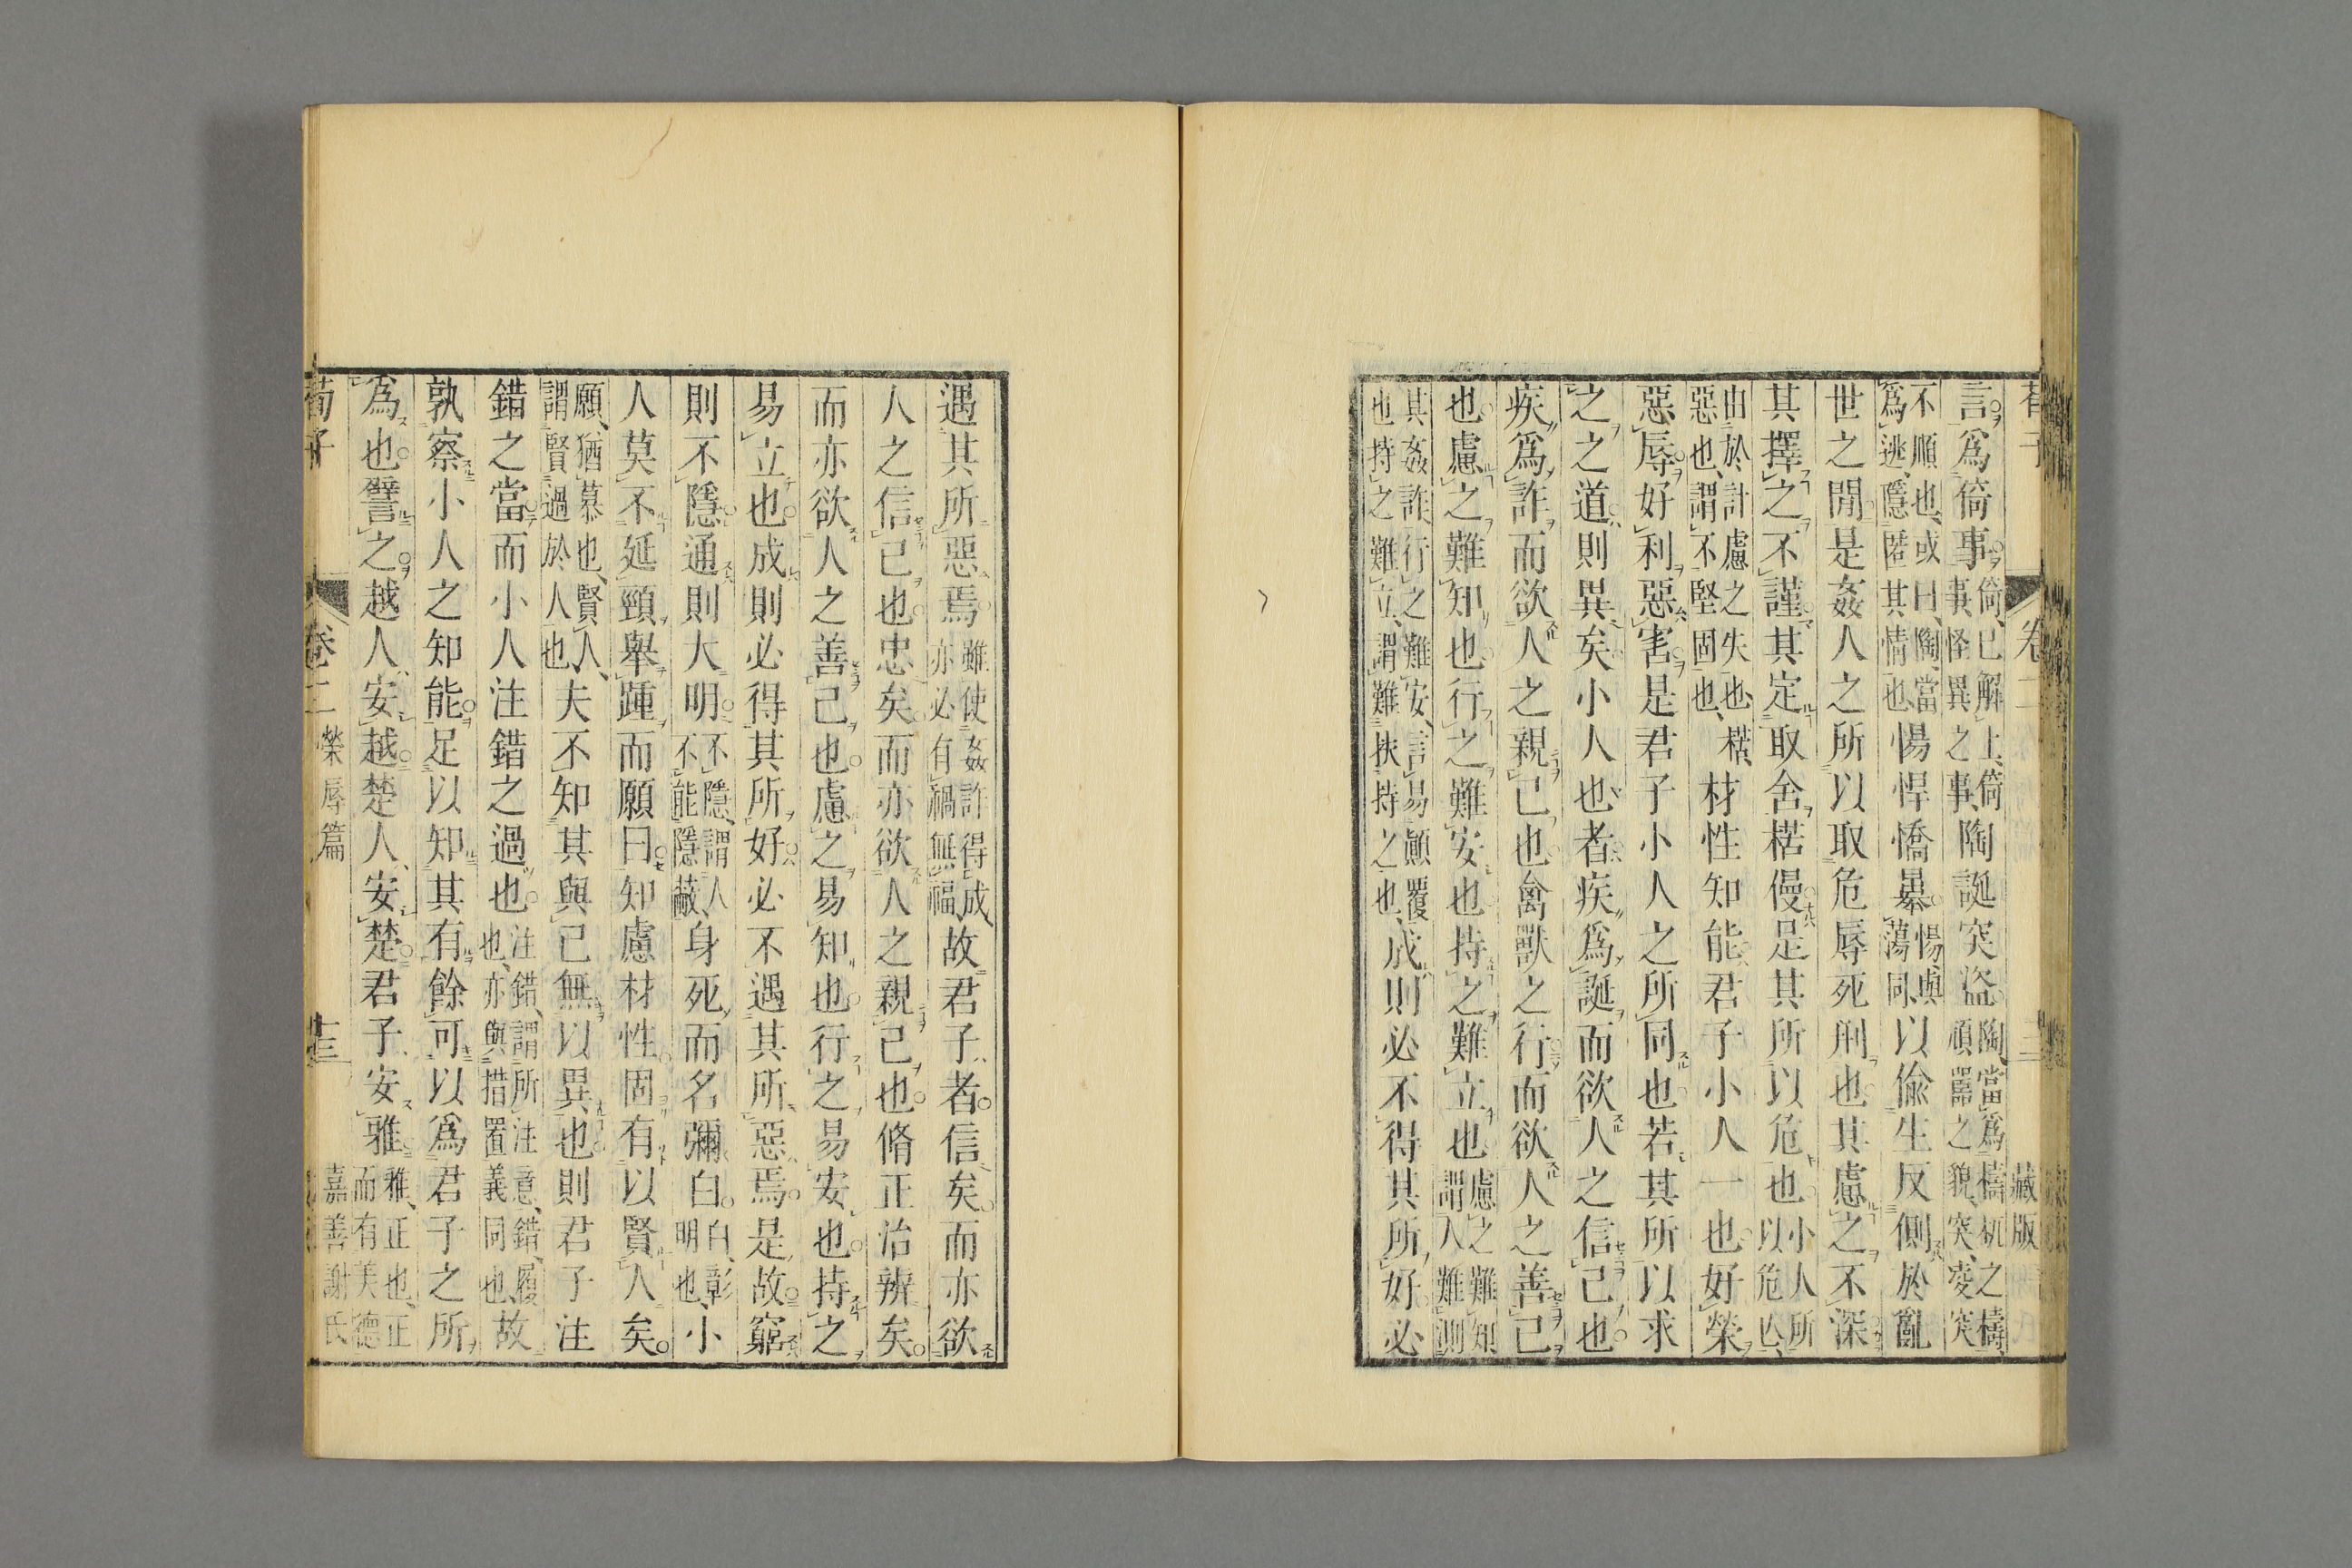 子 卷二 藏版
言爲倚事倚已解上倚事怪異之事陶誕突盜陶當爲檮杌之檮頑嚚之貌突凌突
不順也或曰陶當爲逃隱匿其情也愓悍憍暴愓與蕩同以偸生反側於亂
世之閒是姦人之所以取危辱死刑也其慮之不深
其擇之不謹其定取舍楛僈足其所以危也小人所以危亾
由於計慮之失也楛惡也謂不堅固也材性知能君子小人一也好榮
惡辱好利惡害是君子小人之所同也若其所以求
之之道則異矣小人也者疾爲誕而欲人之信己也
疾爲詐而欲人之親己也禽獸之行而欲人之善己
也慮之難知也行之難安也持之難立也慮之難知謂人難測
其姦詐行之難安言易顚覆也持之難立謂難扶持之也成則必不得其所好必
遇其所惡焉雖使姦詐得成亦必有禍無福故君子者信矣而亦欲
人之信己也忠矣而亦欲人之親己也脩正治辨矣
而亦欲人之善己也慮之易知也行之易安也持之
易立也成則必得其所好必不遇其所惡焉是故窮
則不隱通則大明不隱謂人不能隱蔽身死而名彌白白彰明也小
人莫不延頸舉踵而願曰知慮材性固有以賢人矣
願猶慕也賢人謂賢過於人也夫不知其與己無以異也則君子注
錯之當而小人注錯之過也注錯謂所注意錯履也亦與措置義同也故
孰察小人之知能足以知其有餘可以爲君子之所
爲也譬之越人安越楚人安楚君子安雅雅正也正而有美德
荀子 卷二 榮辱篇 十三 嘉善謝氏